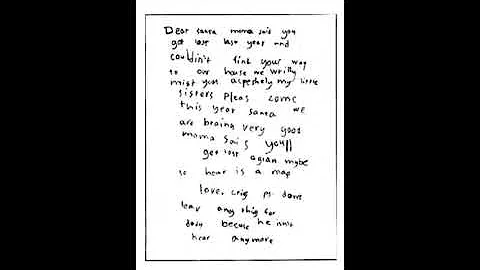 Dear santa mama said you
got lost last year and
couldn't find your way
to our house we writly
mist you. aspeshely my little
sisters pleas come
this year santa we
are beaing very good
mama sais you'll
get lost agian mybe
so hear is a map
love, crig ps. dont
leav any thig for
dady becuse he ains
hear anymore